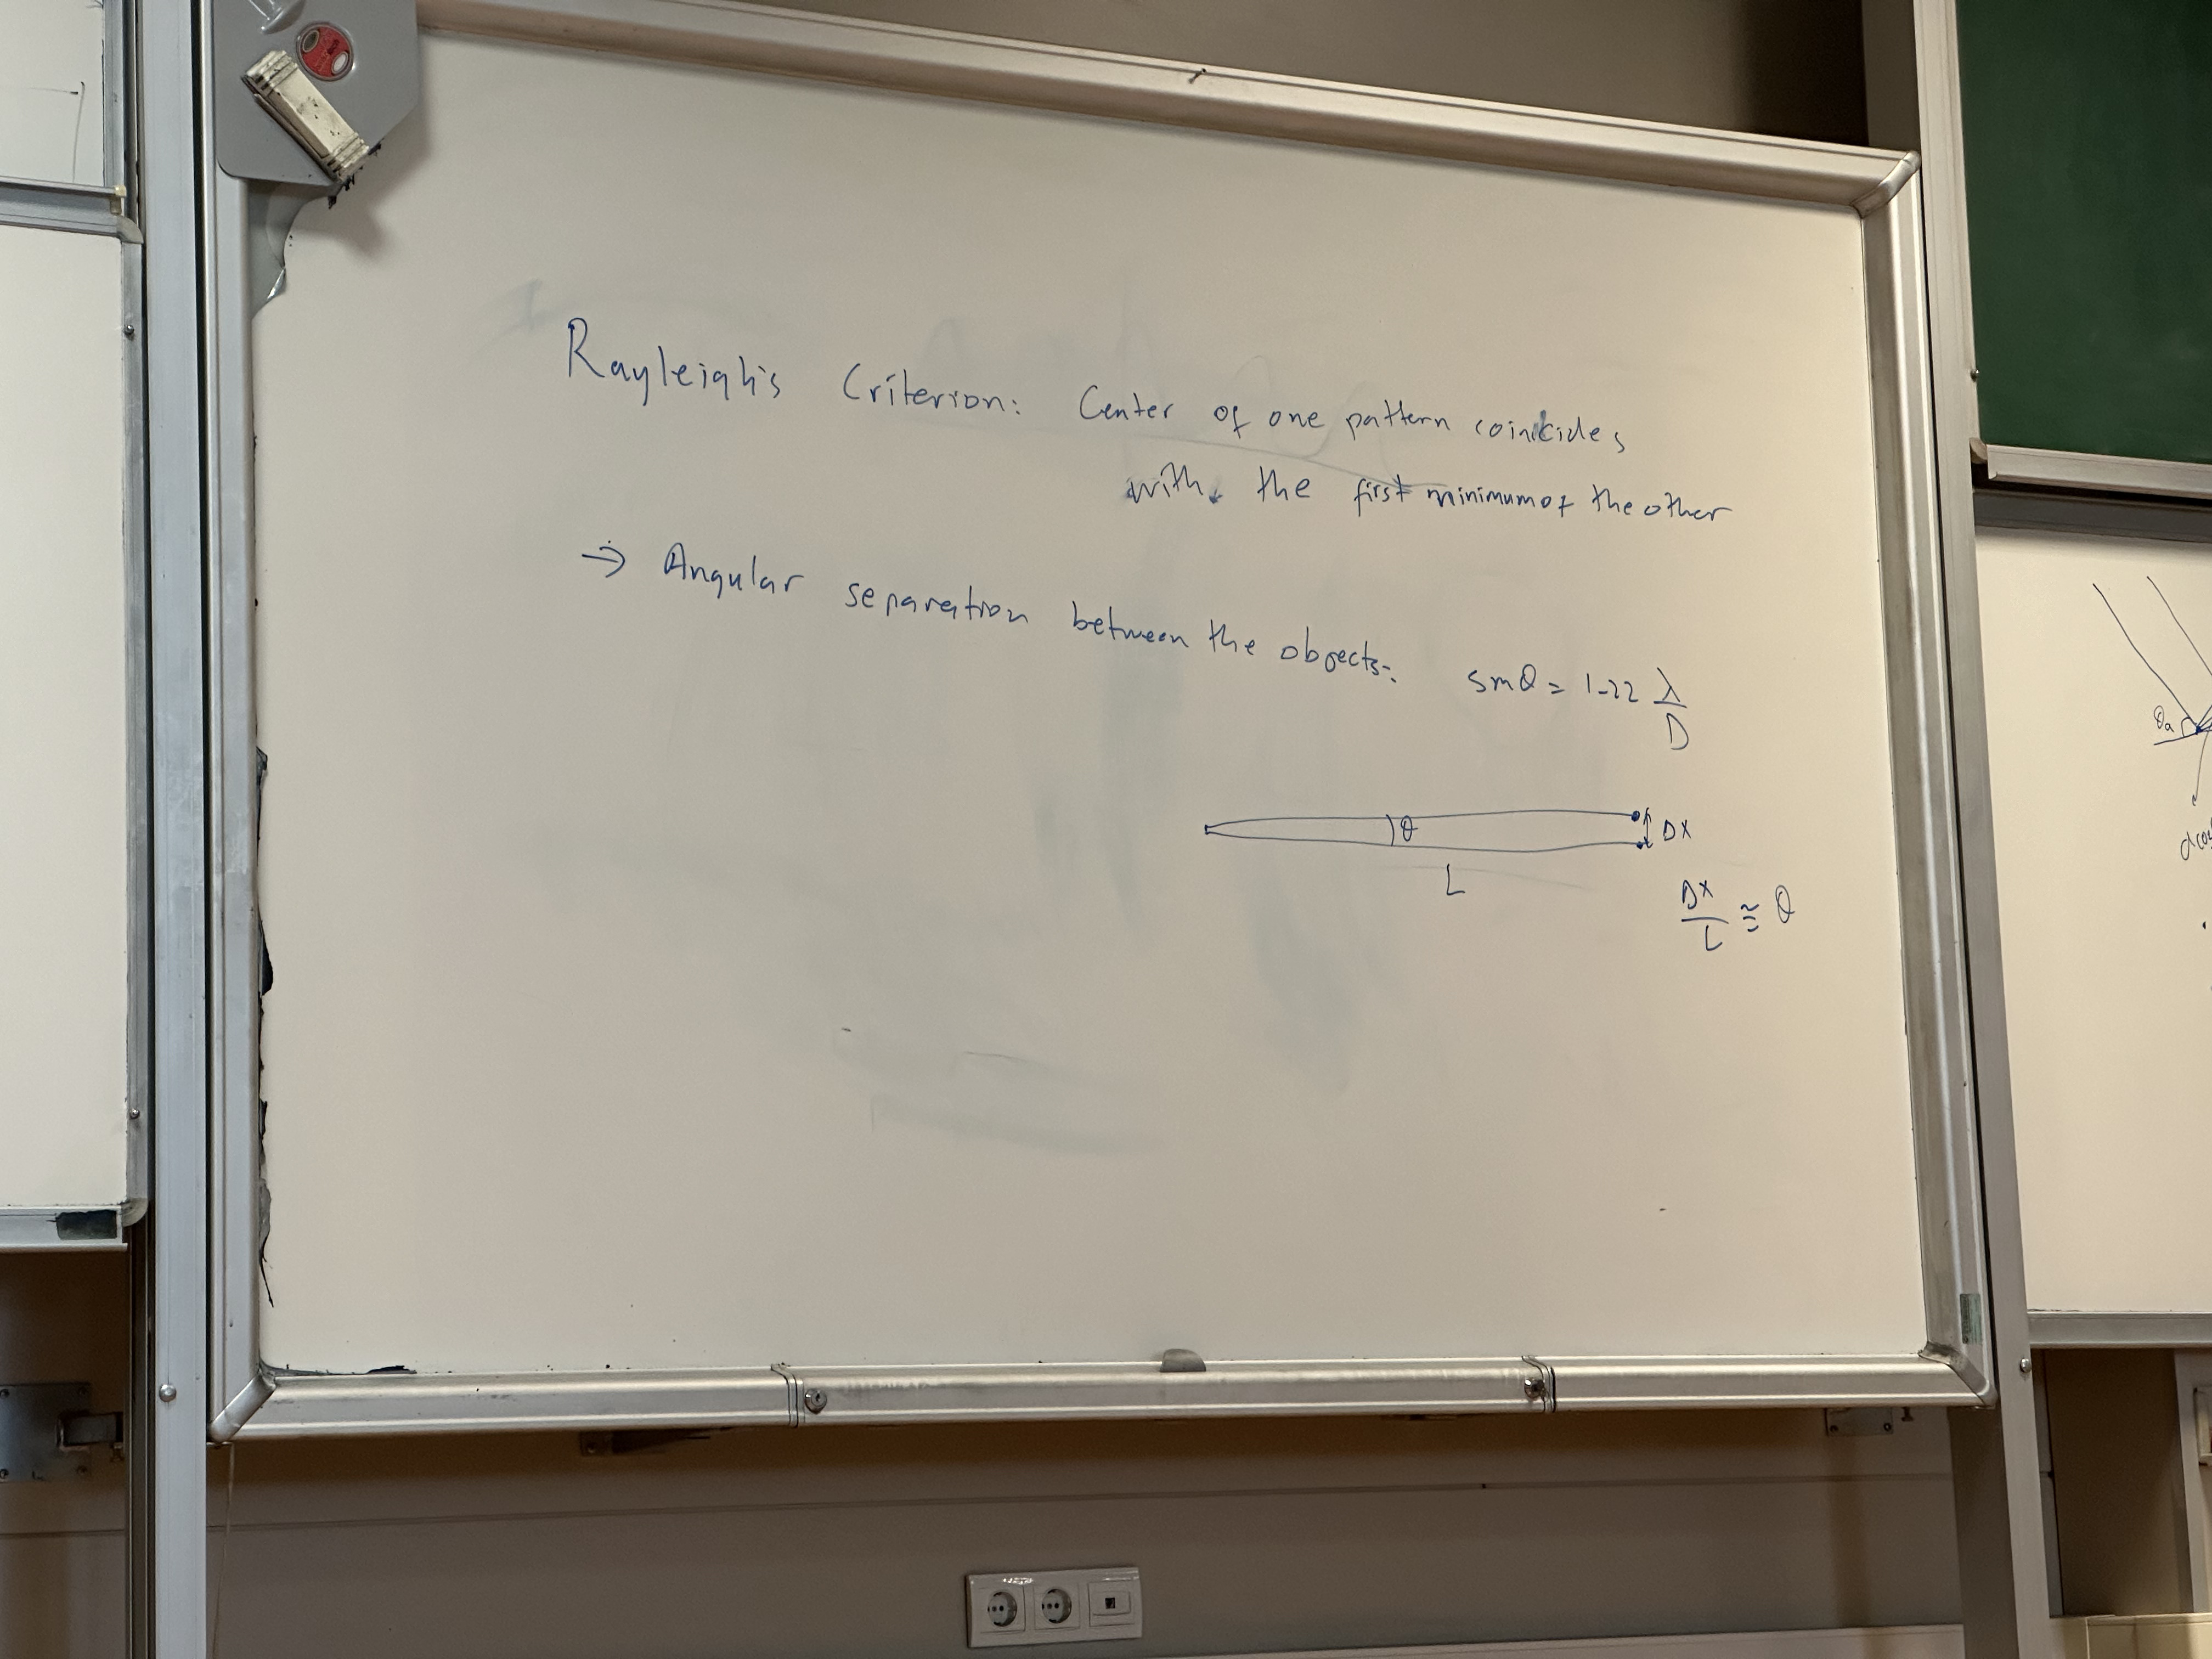 Rayleigh's Criterion: Center of one pattern coincides
with the first minimum of the other
→ Angular separation between the objects: sinθ = 1.22 λ/D
θ
Δx
L
Δx/L ≅ θ
θa